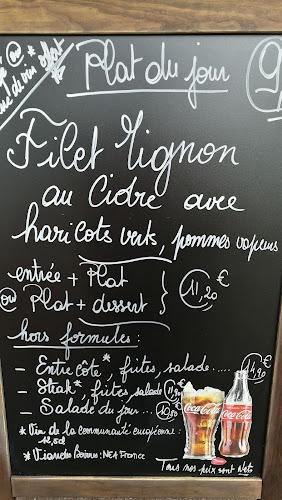 Plat du jour
Filet Mignon
au Cidre avec
haricots verts, pommes vapeurs
entrée + Plat
ou Plat + dessert
11,20 €
hors formules :
- Entrecôte*, frites, salade : .... 14,90 €
- Steak*, frites, salade
- Salade du jour ... 10,50
Coca-Cola
Coca-Cola
* Vin de la communauté européenne :
12,5cl
* Viandes Bovines : NEA France
Tous nos prix sont Nets